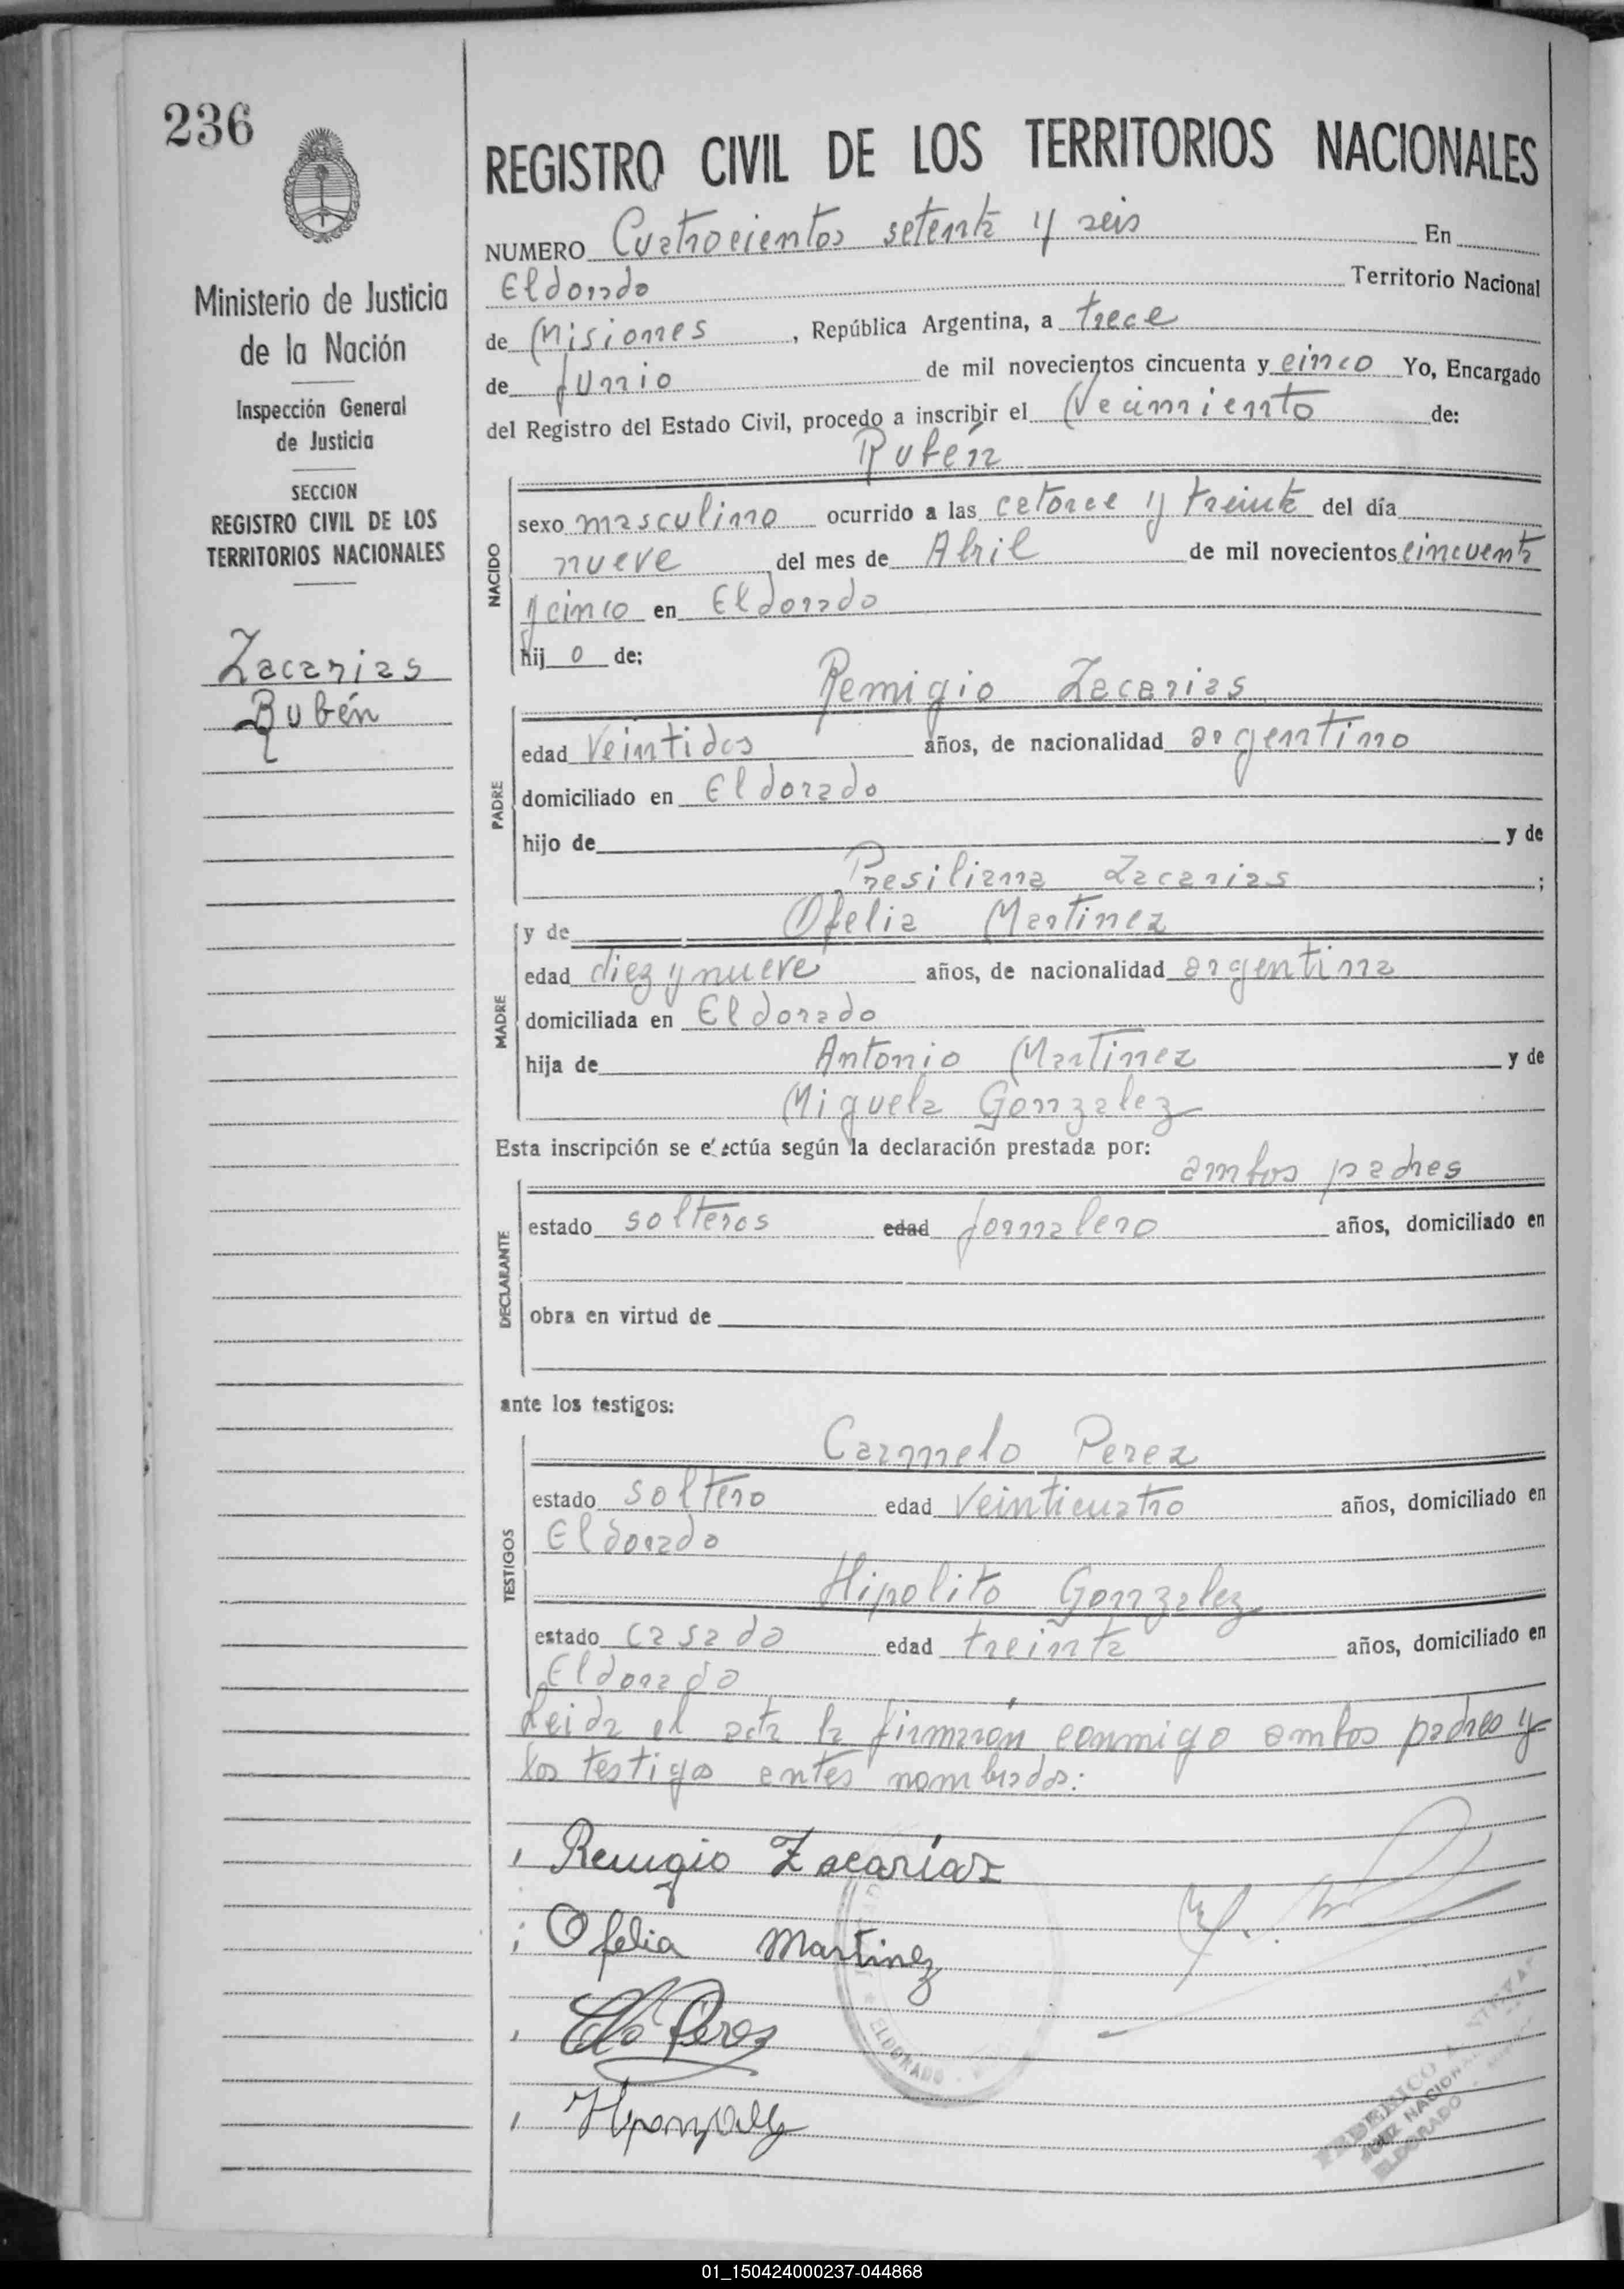 236
Ministerio de Justicia
de la Nación
Inspección General
de Justicia
SECCION
REGISTRO CIVIL DE LOS
TERRITORIOS NACIONALES
Zacarias
Rubén
REGISTRO CIVIL DE LOS TERRITORIOS NACIONALES
NUMERO Cuatrocientos setenta y seis En
Eldorado Territorio Nacional
de Misiones, República Argentina, a trece
de Junio de mil novecientos cincuenta y cinco Yo, Encargado
del Registro del Estado Civil, procedo a inscribir el Nacimiento de:
Rubén
NACIDO
sexo masculino ocurrido a las catorce y treinta del día
nueve del mes de Abril de mil novecientos cincuenta
y cinco en Eldorado
hijo de:
Remigio Zacarias
PADRE
edad Veintidos años, de nacionalidad argentino
domiciliado en Eldorado
hijo de y de
Presiliana Zacarias ;
y de Ofelia Martinez
MADRE
edad diez y nueve años, de nacionalidad argentina
domiciliada en Eldorado
hija de Antonio Martinez y de
Miguela Gonzalez
Esta inscripción se efectúa según la declaración prestada por:
ambos padres
DECLARANTE
estado solteros edad jornalero años, domiciliado en
obra en virtud de
ante los testigos:
Carmelo Perez
TESTIGOS
estado soltero edad Veinticuatro años, domiciliado en
Eldorado
Hipolito Gonzalez
estado casado edad treinta años, domiciliado en
Eldorado
Leida el acta la firmarón conmigo ambos padres y
los testigos antes nombrados:
Remigio Zacarías
Ofelia Martinez
Perez
ELDORADO
FEDERICO
JUEZ NACIONAL
ELDORADO
01_150424000237-044868